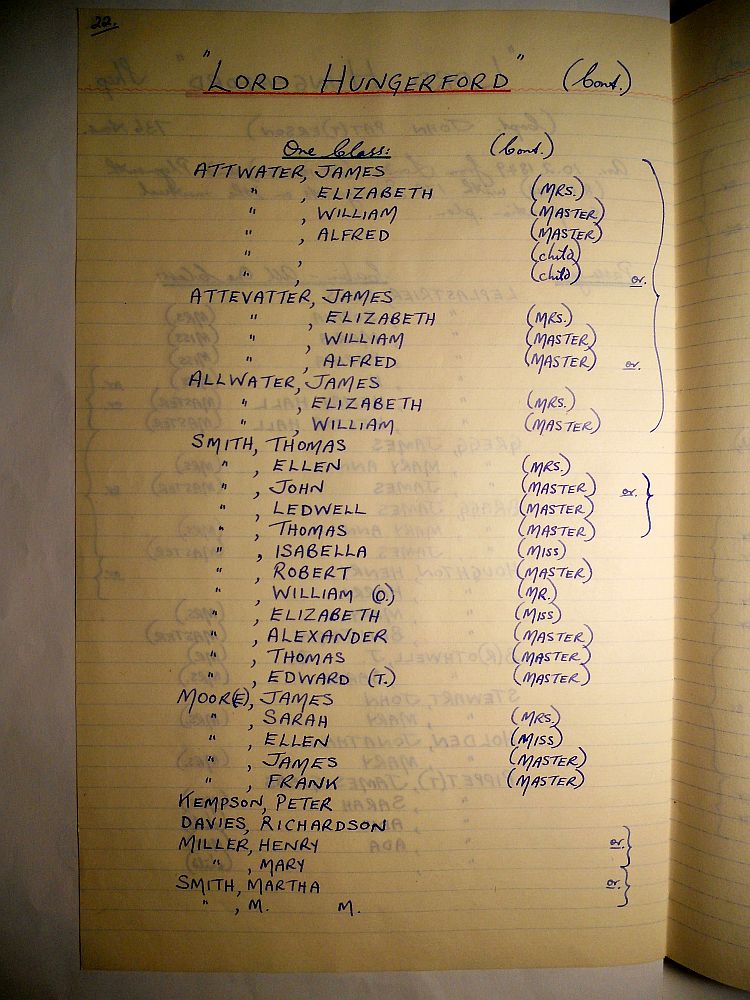 22.
"LORD HUNGERFORD" (Cont.)
One Class: (Cont.)
ATTWATER, JAMES
" , ELIZABETH (MRS.)
" , WILLIAM (MASTER)
" , ALFRED (MASTER)
" , (child)
" , (child) or.
ATTEVATTER, JAMES
" , ELIZABETH (MRS.)
" , WILLIAM (MASTER)
" , ALFRED (MASTER) or.
ALLWATER, JAMES
" , ELIZABETH (MRS.)
" , WILLIAM (MASTER)
SMITH, THOMAS
" , ELLEN (MRS.)
" , JOHN (MASTER) or.
" , LEDWELL (MASTER)
" , THOMAS (MASTER)
" , ISABELLA (MISS)
" , ROBERT (MASTER)
" , WILLIAM (O.) (MR.)
" , ELIZABETH (MISS)
" , ALEXANDER (MASTER)
" , THOMAS (MASTER)
" , EDWARD (T.) (MASTER)
MOOR(E), JAMES
" , SARAH (MRS.)
" , ELLEN (MISS)
" , JAMES (MASTER)
" , FRANK (MASTER)
KEMPSON, PETER
DAVIES, RICHARDSON
MILLER, HENRY or.
" , MARY
SMITH, MARTHA or.
" , M. M.